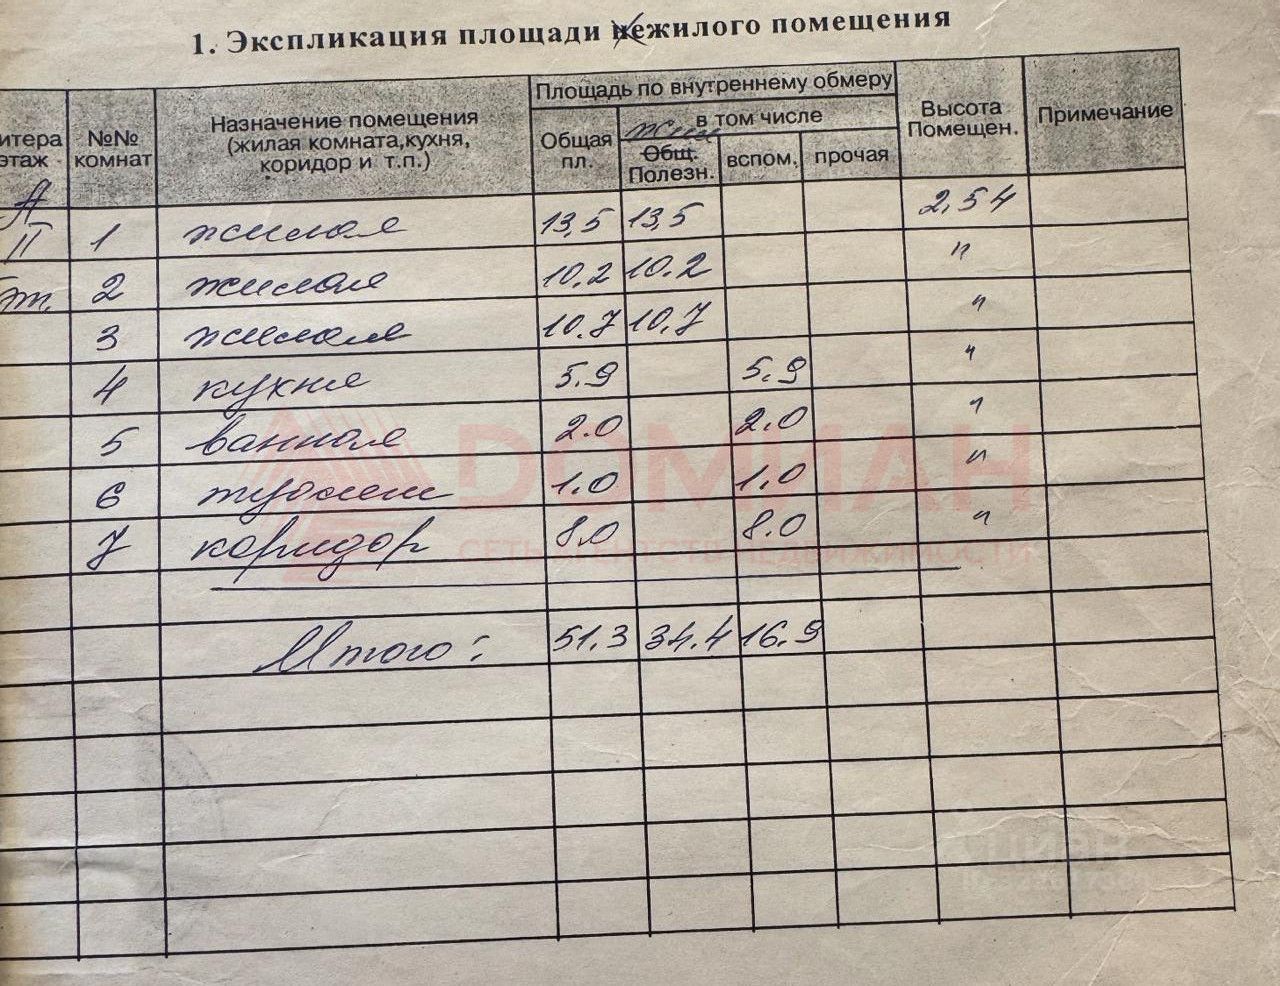 1. Экспликация площади нежилого помещения
итера этаж
№№ комнат
Назначение помещения (жилая комната,кухня, коридор и т.п.)
Площадь по внутреннему обмеру
Общая пл.
в том числе
жил
Общ. Полезн.
вспом.
прочая
Высота Помещен.
Примечание
А
II 1 жилая 13,5 13,5 2,54
эт. 2 жилая 10.2 10.2 "
3 жилая 10.7 10,7 "
4 кухня 5.9 5.9 "
5 ванная 2.0 2.0 "
6 туалет 1.0 1.0 "
7 коридор 8.0 8.0 "
Итого: 51.3 34.4 16.9
ДОМИАН
СЕТЬ АГЕНТСТВ НЕДВИЖИМОСТИ
циан